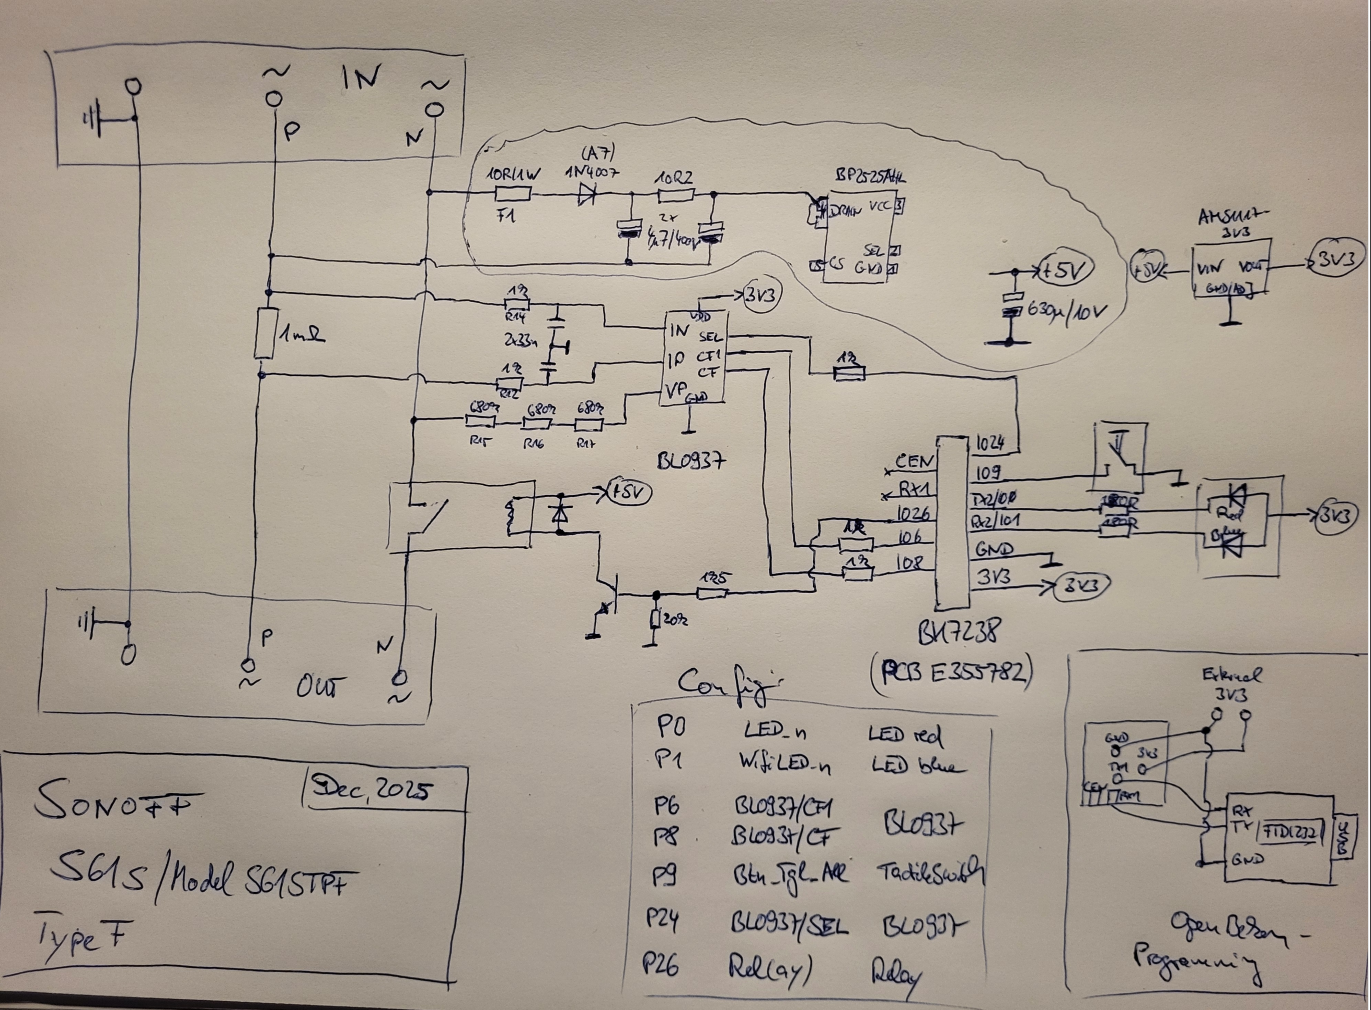 IN
~
~
P
N
10R/1W
F1
(A7)
1N4007
10R2
2x
4µ7/400V
BP2525
DRAIN
VCC 3
SEL 2
CS
GND
+5V
630µ/10V
AMS1117-
3V3
+5V
VIN
VOUT
GND/ADJ
3V3
1mΩ
1k
R14
2x33n
1k
R12
680k
R15
680k
R16
680k
R17
VDD
3V3
IN
IP
VP
SEL
CF1
CF
GND
BL0937
1k
+5V
1k5
20k
1k
1k
CEN
RX1
IO26
IO6
IO8
IO24
IO9
TX2/IO0
RX2/IO1
GND
3V3
3V3
BK7238
(PCB E355782)
180R
180R
Red
Blue
3V3
P
N
~
~
OUT
Config:
P0 LED_n LED red
P1 WifiLED_n LED blue
P6 BL0937/CF1
BL0937
P8 BL0937/CF
P9 Btn_Tgl_All TactileSwitch
P24 BL0937/SEL BL0937
P26 Rel(ay) Relay
Dec, 2025
SONOFF
S61S/Model S61STPF
Type F
External
3V3
GND
3V3
TX1
CEN
RX1
RX
TX
FTDI232
GND
USB
OpenBeken-
Programming